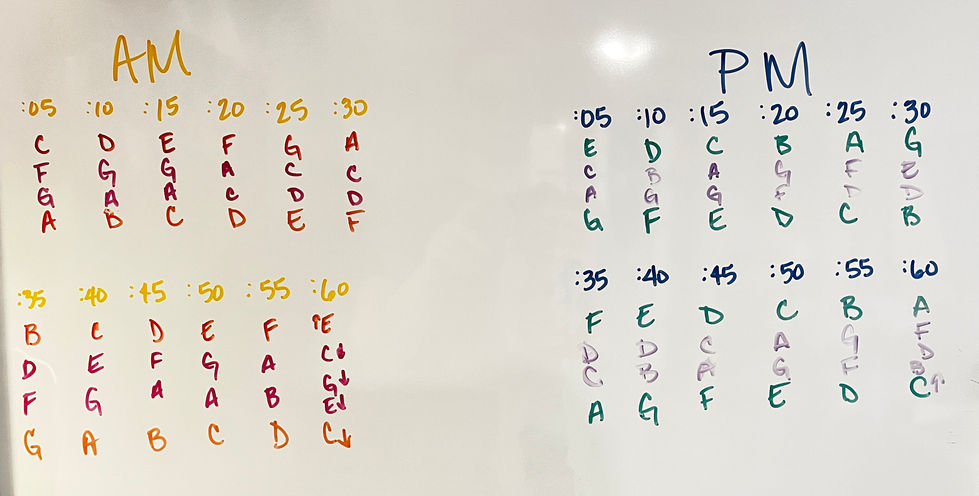 AM
:05 :10 :15 :20 :25 :30
C D E F G A
F G G A C C
G A A C D D
A B C D E F
:35 :40 :45 :50 :55 :60
B C D E F ↑E
D E F G A C↓
F G A A B G↓
E↓
G A B C D C↓
PM
:05 :10 :15 :20 :25 :30
E D C B A G
C B A G F E
A G G F D D
G F E D C B
:35 :40 :45 :50 :55 :60
F E D C B A
D D C A G F
D
C B A G F B
A G F E D C↑